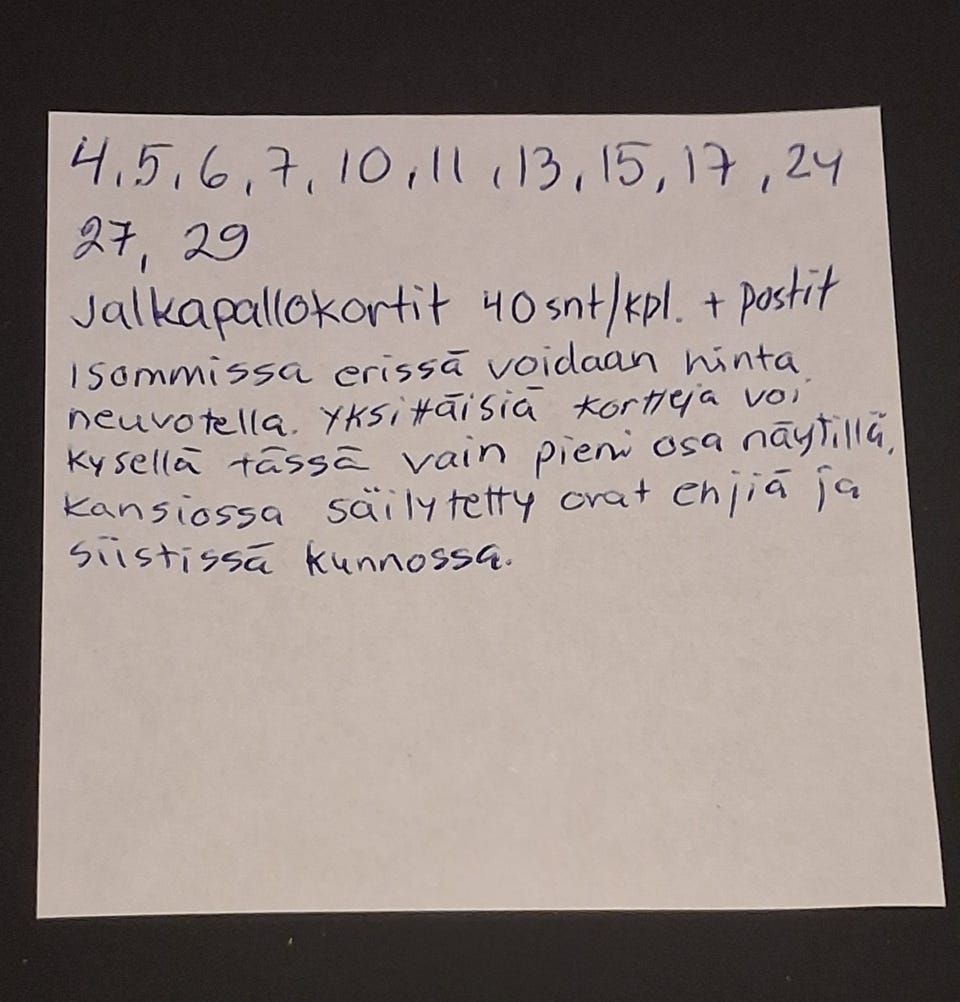 4, 5, 6, 7, 10, 11, 13, 15, 17, 24
27, 29
Jalkapallokortit 40 snt/kpl. + postit
Isommissa erissä voidaan hinta
neuvotella. Yksittäisiä kortteja voi
kysellä tässä vain pieni osa näytillä,
Kansiossa säilytetty ovat ehjiä ja
siistissä kunnossa.